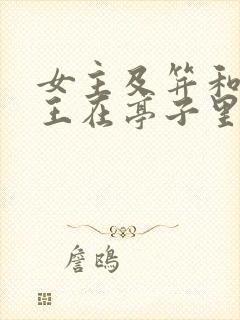 女主及笄和
王在亭子里
詹鸥